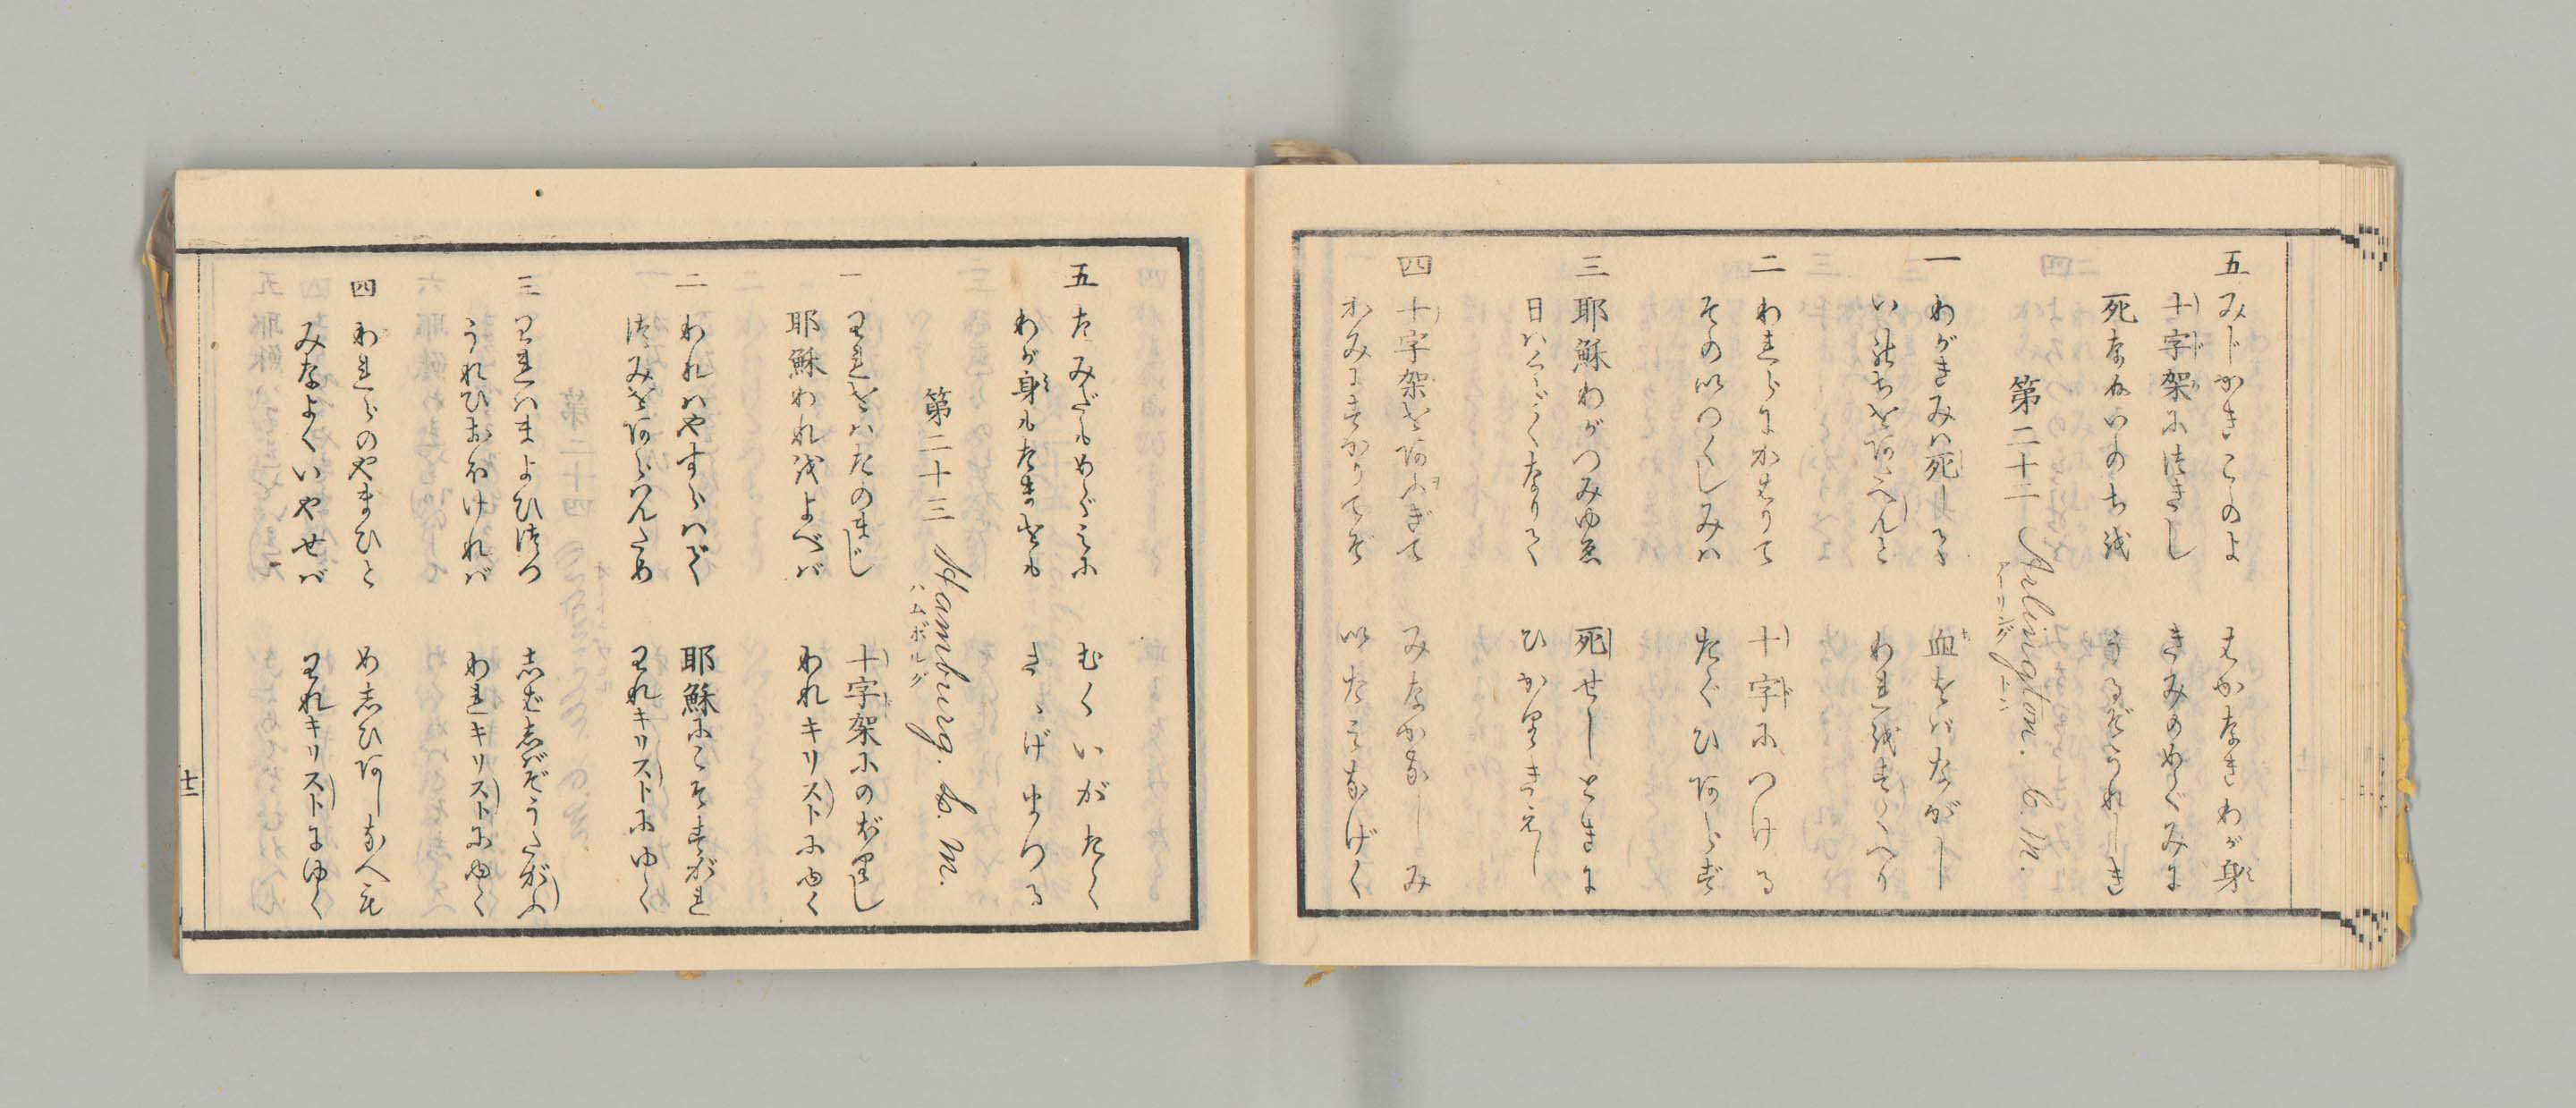 五 みじかきこのよ はかなきわが身
十字架につきし きみのめぐみに
死なぬいのち を うるぞうれしき
第二十二 Arlington. C. M.
アーリングトン
一 わがきみは死し 血をばながし
いのちをあへん われをすくへり
二 われらにかはりて 十字につける
そのいつくしみは たぐひあらず
三 耶穌わがつみゆゑ 死せしときに
日はくらくなりて ひかりきえし
四 十字架をあふぎて みなかなしみ
かみにむかりてぞ いたみなげく
五 なみだもめぐみに むくいがたく
わが身もたまをも さゝげまつる
第二十三 Hamburg. L. M.
ハムボルグ
一 われをはたのまじ 十字架にのぼりし
耶穌われをよべば われキリストにゆく
二 われはやすらはで 耶穌にこそすがれ
つみをあらはんため われキリストにゆく
三 われはまよひつつ しばしばぞうたがふ
うれひおほければ われキリストにゆく
四 われらのやまひと めしひあしなへも
みなよくいやせば われキリストにゆく
十二